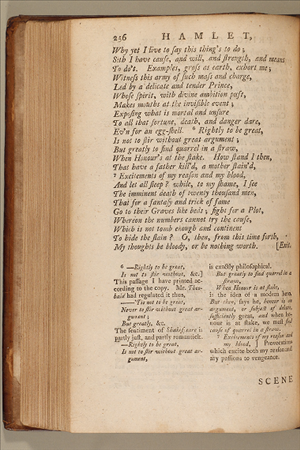 236 HAMLET,
Why yet I live to say this thing's to do;
Sith I have cause, and will, and strength, and means
To do't. Examples, gross as earth, exhort me;
Witness this army of such mass and charge,
Led by a delicate and tender Prince,
Whose spirit, with divine ambition puft,
Makes mouths at the invisible event;
Exposing what is mortal and unsure
To all that fortune, death, and danger dare,
Ev'n for an egg-shell. ⁶ Rightly to be great,
Is not to stir without great argument;
But greatly to find quarrel in a straw,
When Honour's at the stake. How stand I then,
That have a father kill'd, a mother stain'd,
⁷ Excitements of my reason and my blood,
And let all sleep? while, to my shame, I see
The imminent death of twenty thousand men,
That for a fantasy and trick of fame
Go to their Graves like beds; fight for a Plot,
Whereon the numbers cannot try the cause,
Which is not tomb enough and continent
To hide the slain? O, then, from this time forth,
My thoughts be bloody, or be nothing worth. [Exit.
⁶ —Rightly to be great,
Is not to stir without, &c.]
This passage I have printed according to the copy. Mr. Theobald
had regulated it thus,
—'Tis not to be great,
Never to stir without great argument;
But greatly, &c.
The sentiment of Shakespeare is
partly just, and partly romantick.
—Rightly to be great,
Is not to stir without great argument,
is exactly philosophical.
But greatly to find quarrel in a
straw,
When Honour is at stake,
is the idea of a modern hero.
But then, says he, honour is an
argument, or subject of debate,
sufficiently great, and when honour
is at stake, we must find
cause of quarrel in a straw.
⁷ Excitements of my reason and
my blood,] Provocations
which excite both my reason and
my passions to vengeance.
SCENE